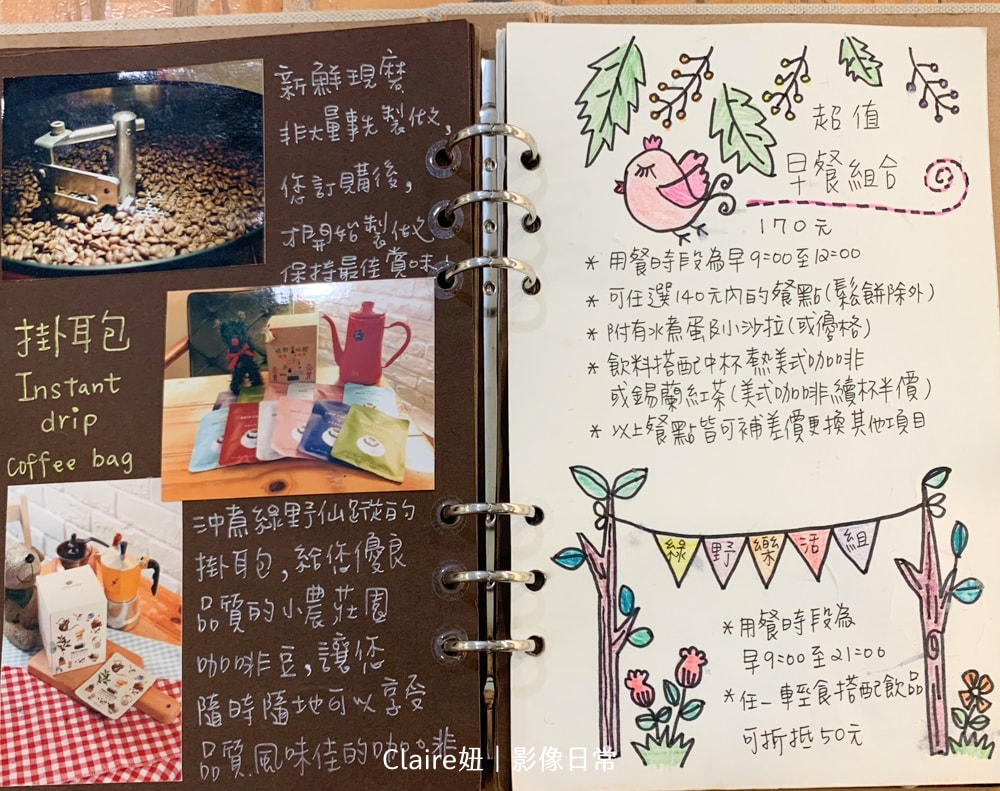 新鮮現磨
非大量事先製做,
您訂購後,
才開始製做
保持最佳賞味!
掛耳包
Instant
drip
coffee bag
沖煮綠野仙蹤的
掛耳包,給您優良
品質的小農莊園
咖啡豆,讓您
隨時隨地可以享受
品質風味佳的咖啡
超值
早餐組合
170元
* 用餐時段為早9:00至12:00
* 可任選140元內的餐點(鬆餅除外)
* 附有水煮蛋&小沙拉(或優格)
* 飲料搭配中杯熱美式咖啡
或錫蘭紅茶(美式咖啡續杯半價)
* 以上餐點皆可補差價更換其他項目
綠野樂活組
* 用餐時段為
早9:00至21:00
* 任一輕食搭配飲品
可折抵50元
Claire妞｜影像日常